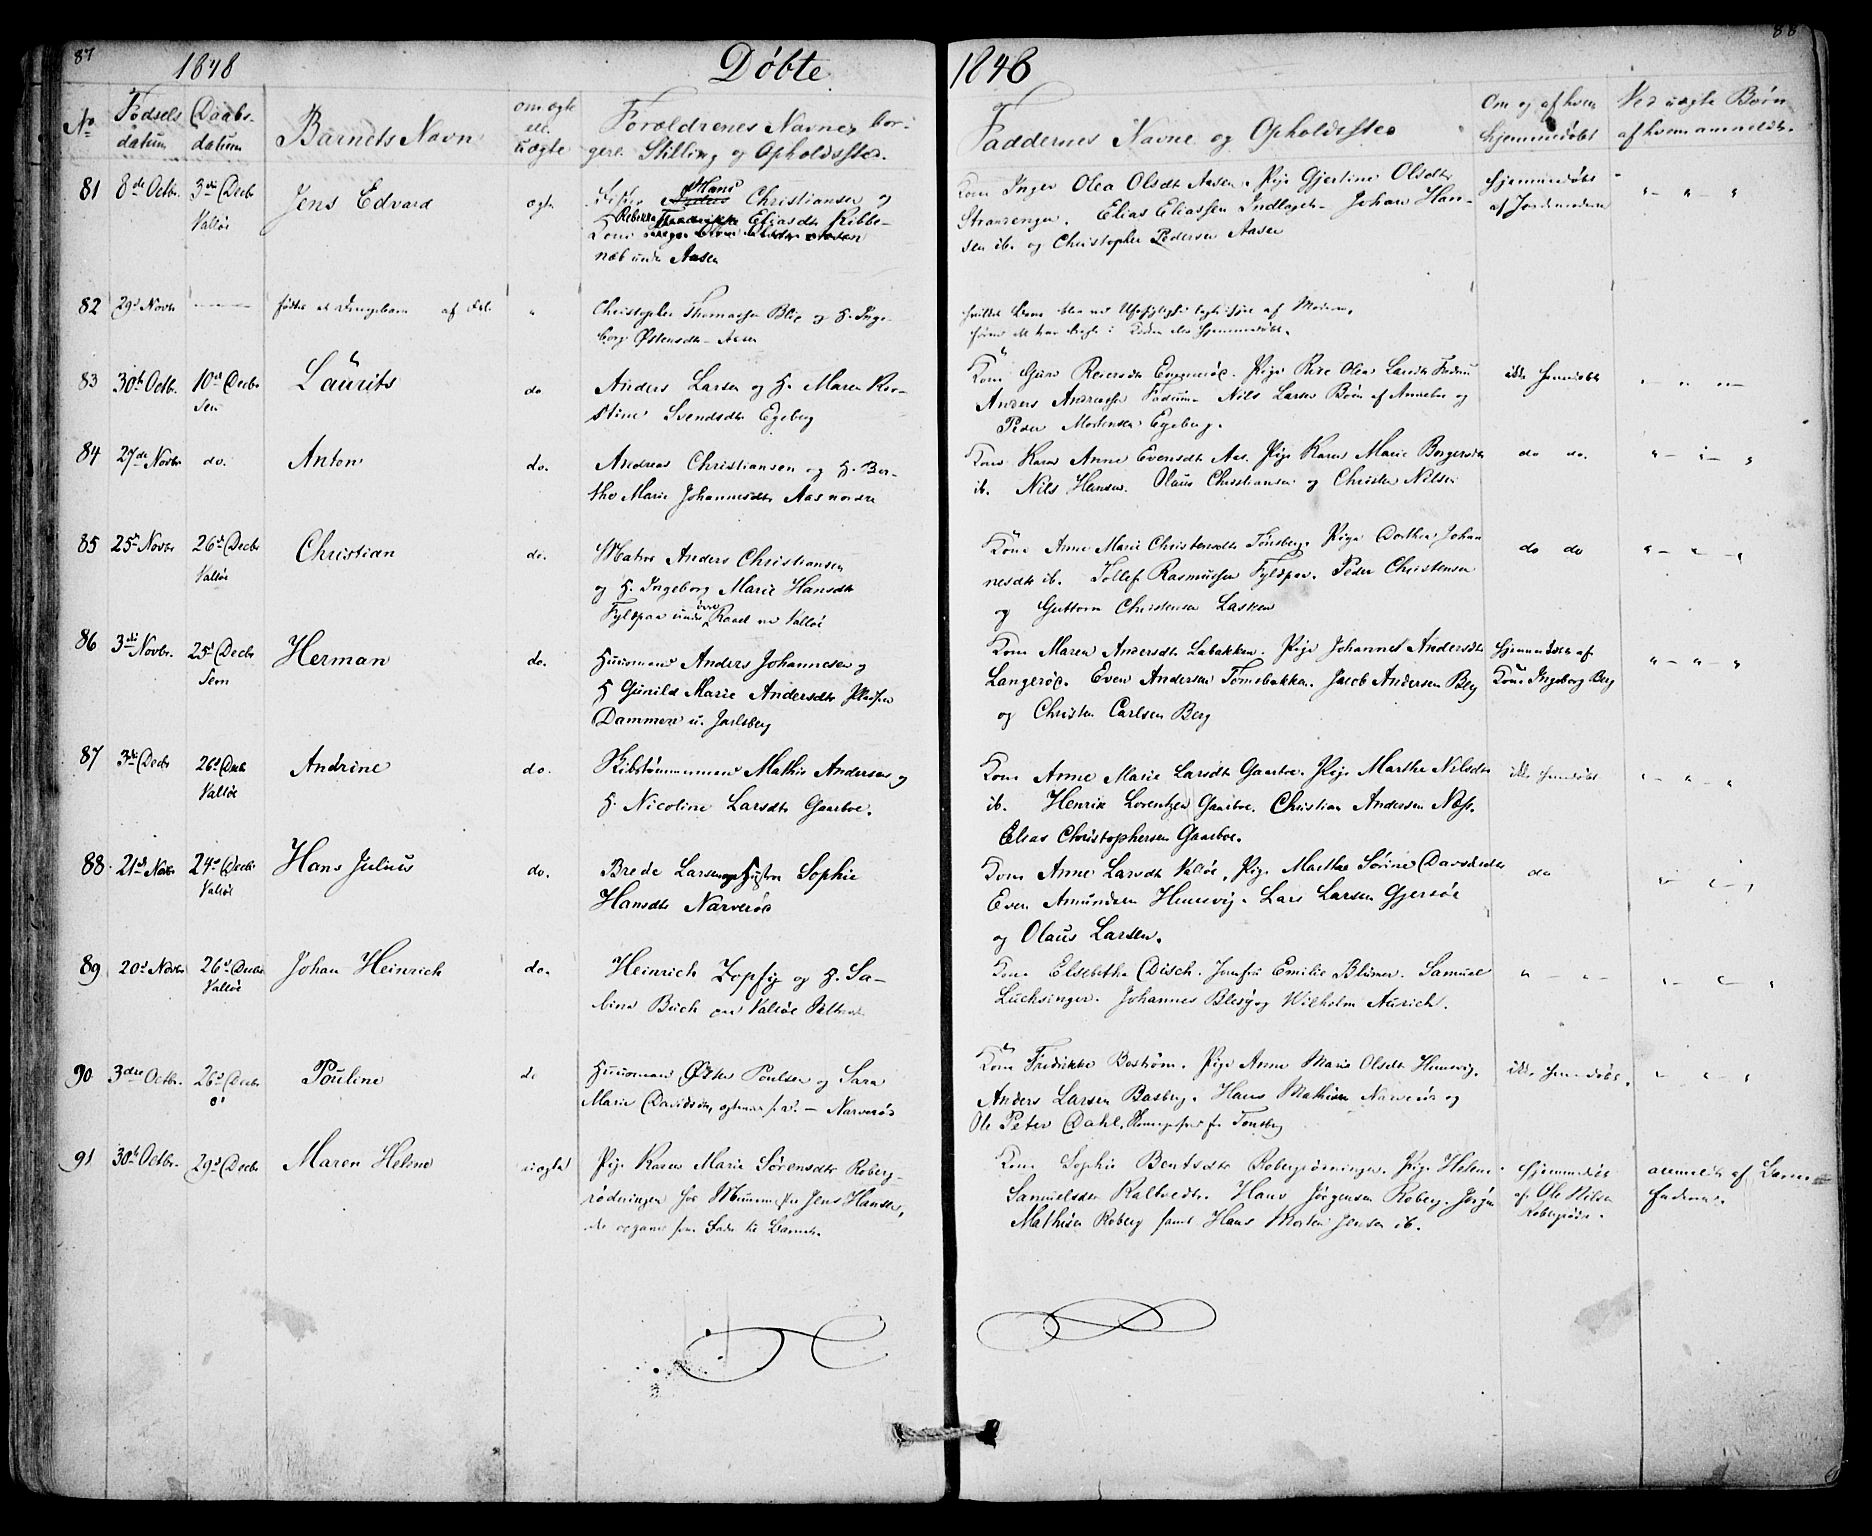 87
88
1848
Døbte
1848
No
Fødsels datum
Daabs- datum
Barnets Navn
om ægte ell. uægte
Forældrenes Navne, bor-
gerl. Stilling og Opholdssted.
Faddernes Navne og Opholdssted
Om og af hvem hjemmedøbt
Ved uægte Børn af hvem anmeldt.
81 8de Octbr. 3die Decbr Valløe
Jens Edvard
ægte
Hans Christiansen og
Kone Eliasdtr Ribbe-
næb under Aasen
Kone Inger Olea Olsdtr Aasen. Pige Gjertine Olsdtr
Strandengen. Elias Eliassen Indlaget. Johan Han-
sen ib. og Christopher Pedersen Aasen
hjemmedøbt
af Jordemoderen
82 29d Novbr
født et Drengebarn
Christopher Thomassen og H. Inge-
borg Østensdtr Aasen
83 30te Octbr. 10de Decbr Sem
Laurits
do
Anders Larsen og H. Maren Kir-
stine Svendsdtr Egeberg
Kone Guro Reiersdtr. Pige
Anders Andreassen Fadum. Nils Larsen Bøen af Annebu og
Peder Mortensen Egeberg.
ikke hjemdøbt
84 27de Novbr do.
Anton
do.
Andreas Christiansen og H. Ber-
the Marie Johannesdtr Aas nordre
Kone Karen Anne Evensdtr Aas. Pige Karen Marie Borgersdtr
ib. Nils Hansen. Olaus Christiansen og Christen Nilsen
do do.
85 25de Novbr 26de Decbr Valløe
Christian
do.
Matros Anders Christiansen
og H. Ingeborg Marie Hansdtr
Fyldpaa under øvre Raael ved Valløe
Kone Anne Marie Christensdtr Tønsberg. Pige Dorthea Johan
nesdtr ib. Tollef Rasmussen Fyldpaa. Peder Christensen
og Guttorm Christensen Lasken
do do
86 3die Novbr. 25d Decbr Sem
Herman
do.
Huusmand Anders Johannesen og
H Gunild Marie Andersdtr Pladsen
Dammen u. Jarlsberg
Kone Maren Andersdtr Labakken. Pige Johanne Andersdtr
Langerød. Even Andersen Tømsbakken. Jacob Andersen Berg
og Christen Carlsen Berg
hjemmedøbt af
Kone Ingeborg Berg
87 3die Decbr 26d Decbr Valløe
Andrine
do.
Mathis Andersen og
H. Nicoline Larsdtr Gaarboe.
Kone Anne Marie Larsdtr Gaarboe. Pige Marthe Nilsdtr
ib. Henrik Lorentzen Gaarboe. Christian Andersen Næs.
Elias Christophersen Gaarboe.
ikke hjemdøbt
88. 21de Novbr 24d Decbr Valløe
Hans Julius
do.
Brede Larsen og Hustru Sophie
Hansdtr Narverød
Kone Anne Larsdtr Valløe, Pige Marthe Sørine Davidsdtr
Even Amundsen Huusvig. Lars Larsen Gjersøe
og Olaus Larsen.
do
89 20d Novbr 26d Decbr Valløe
Johan Heinrich
do.
Heinrich Zopfig og H. Sa-
bine Buch ved Valløe Saltverk
Kone Elisebetha Disch. Jomfru Emilie Blümer. Samuel
Luchsinger. Johannes Blesy og Wilhelm Aurich.
90 3die Octbr. 26d Decbr
Pouline
do
Huusmand Poulsen og Sara
Marie Davidsdtr, Narverød
Kone Fredrikke Bostrøm. Pige Anne Marie Olsdtr Huusvig.
Anders Larsen Basberg. Hans Mathisen Narverød og
Ole Peter Dahl, Tønsberg
ikke hjemdøbt.
91 30te Octbr. 29d Decbr
Maren Helene
uægte
Pige Karen Marie Sørensdtr Roberg-
rødningen Jens Hansen,
som Fader til Barnet.
Kone Sophie Bentsdtr Robergrødningen. Pige Helene
Samuelsdtr Kaltvedt. Hans Jørgensen Roberg. Jørgen
Mathisen Roberg samt Hans Morten Jensen ib.
hjemmedøbt
af Ole Nilsen
anmeldt af Barne-
faderen.